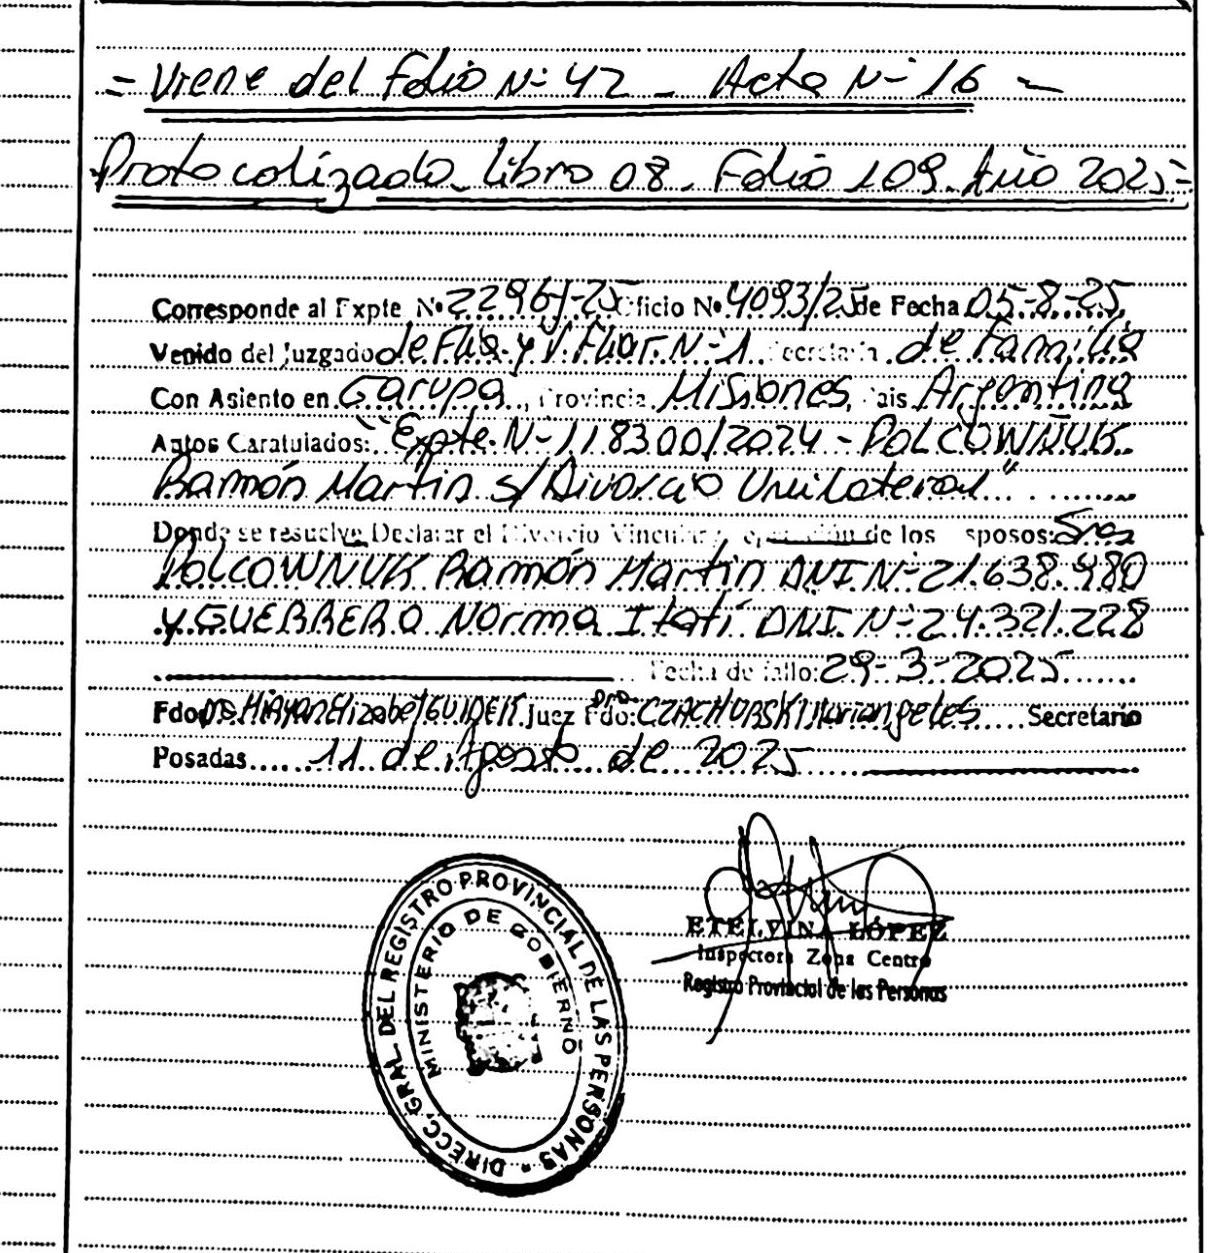 = Viene del folio Nº 42 - Acta Nº 16 -
Protocolizado Libro 08. Folio 109. Año 2025=
Corresponde al Expte Nº 2296-J-25 Oficio Nº 4093/25 de Fecha 05-8-25,
Venido del Juzgado de Flia. y V. Fliar. Nº 1 Secretaría de Familia
Con Asiento en Garupá, Provincia Misiones, Pais Argentina
Autos Caratulados: "Expte. Nº 118300/2024 - POLCOWÑUK
Ramón Martin s/Divorcio Unilateral"
Donde se resuelve Declarar el Divorcio Vincular de los esposos: Sres
POLCOWNUK Ramón Martin DNI Nº 21.638.980
y GUERRERO Norma Itatí DNI. Nº 24.321.228
Fecha de fallo: 29-3-2025
Fdo: Elizabet Juez Fdo: Dra. CZACHURSKI Mariangeles Secretario
Posadas 11 de Agosto de 2025
DIRECC. GRAL. DEL REGISTRO PROVINCIAL DE LAS PERSONAS
MINISTERIO DE GOBIERNO
ETELVINA LÓPEZ
Inspectora Zona Centro
Registro Provincial de las Personas